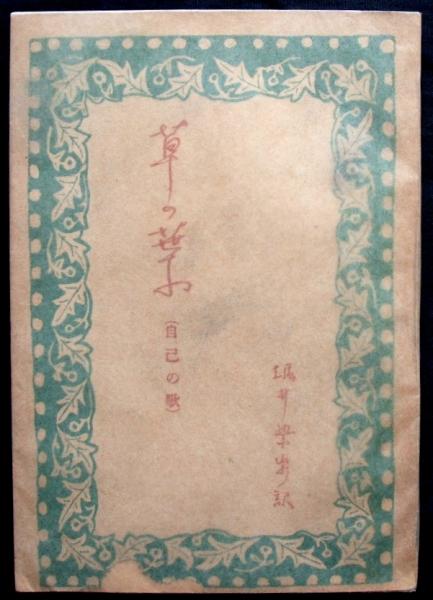 草の葉
(自己の歌)
堀井梁歩訳